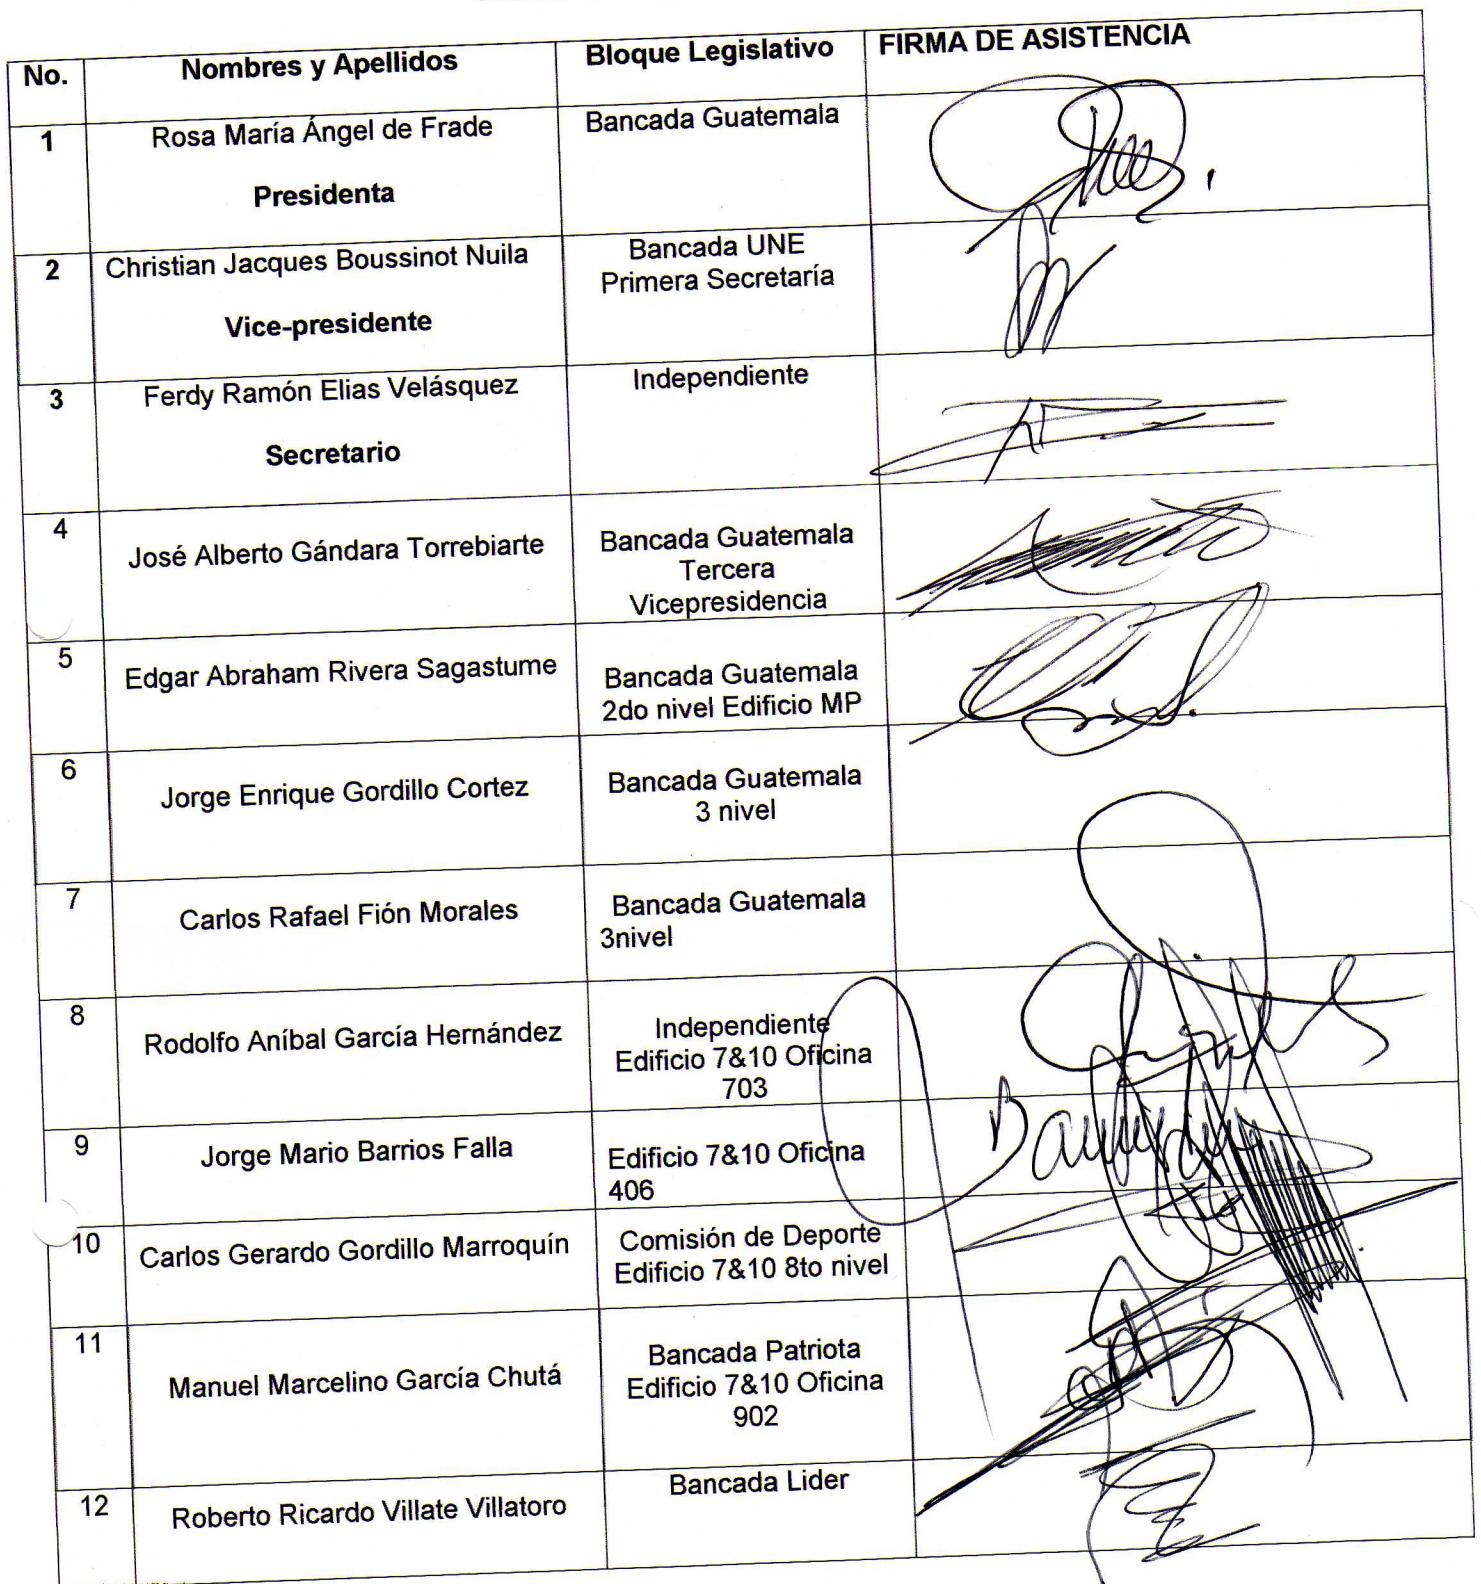 No. Nombres y Apellidos Bloque Legislativo FIRMA DE ASISTENCIA
1 Rosa María Ángel de Frade Bancada Guatemala
Presidenta
2 Christian Jacques Boussinot Nuila Bancada UNE
Primera Secretaría
Vice-presidente
3 Ferdy Ramón Elias Velásquez Independiente
Secretario
4 José Alberto Gándara Torrebiarte Bancada Guatemala
Tercera
Vicepresidencia
5 Edgar Abraham Rivera Sagastume Bancada Guatemala
2do nivel Edificio MP
6 Jorge Enrique Gordillo Cortez Bancada Guatemala
3 nivel
7 Carlos Rafael Fión Morales Bancada Guatemala
3nivel
8 Rodolfo Aníbal García Hernández Independiente
Edificio 7&10 Oficina
703
9 Jorge Mario Barrios Falla Edificio 7&10 Oficina
406
10 Carlos Gerardo Gordillo Marroquín Comisión de Deporte
Edificio 7&10 8to nivel
11 Manuel Marcelino García Chutá Bancada Patriota
Edificio 7&10 Oficina
902
12 Roberto Ricardo Villate Villatoro Bancada Lider